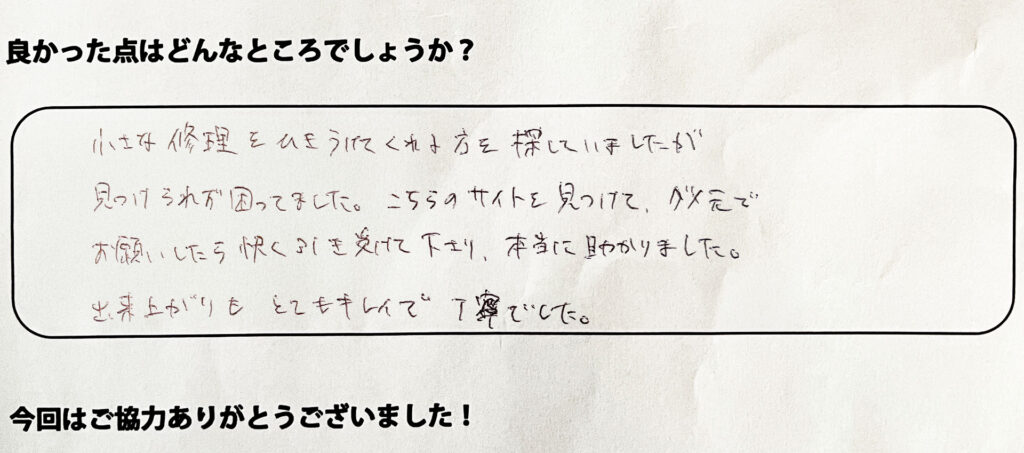 良かった点はどんなところでしょうか？
小さな修理をひきうけてくれる方を探していましたが
見つけられず困ってました。こちらのサイトを見つけて、ダメ元で
お願いしたら快く引き受けて下さり、本当に助かりました。
出来上がりもとてもキレイで丁寧でした。
今回はご協力ありがとうございました！